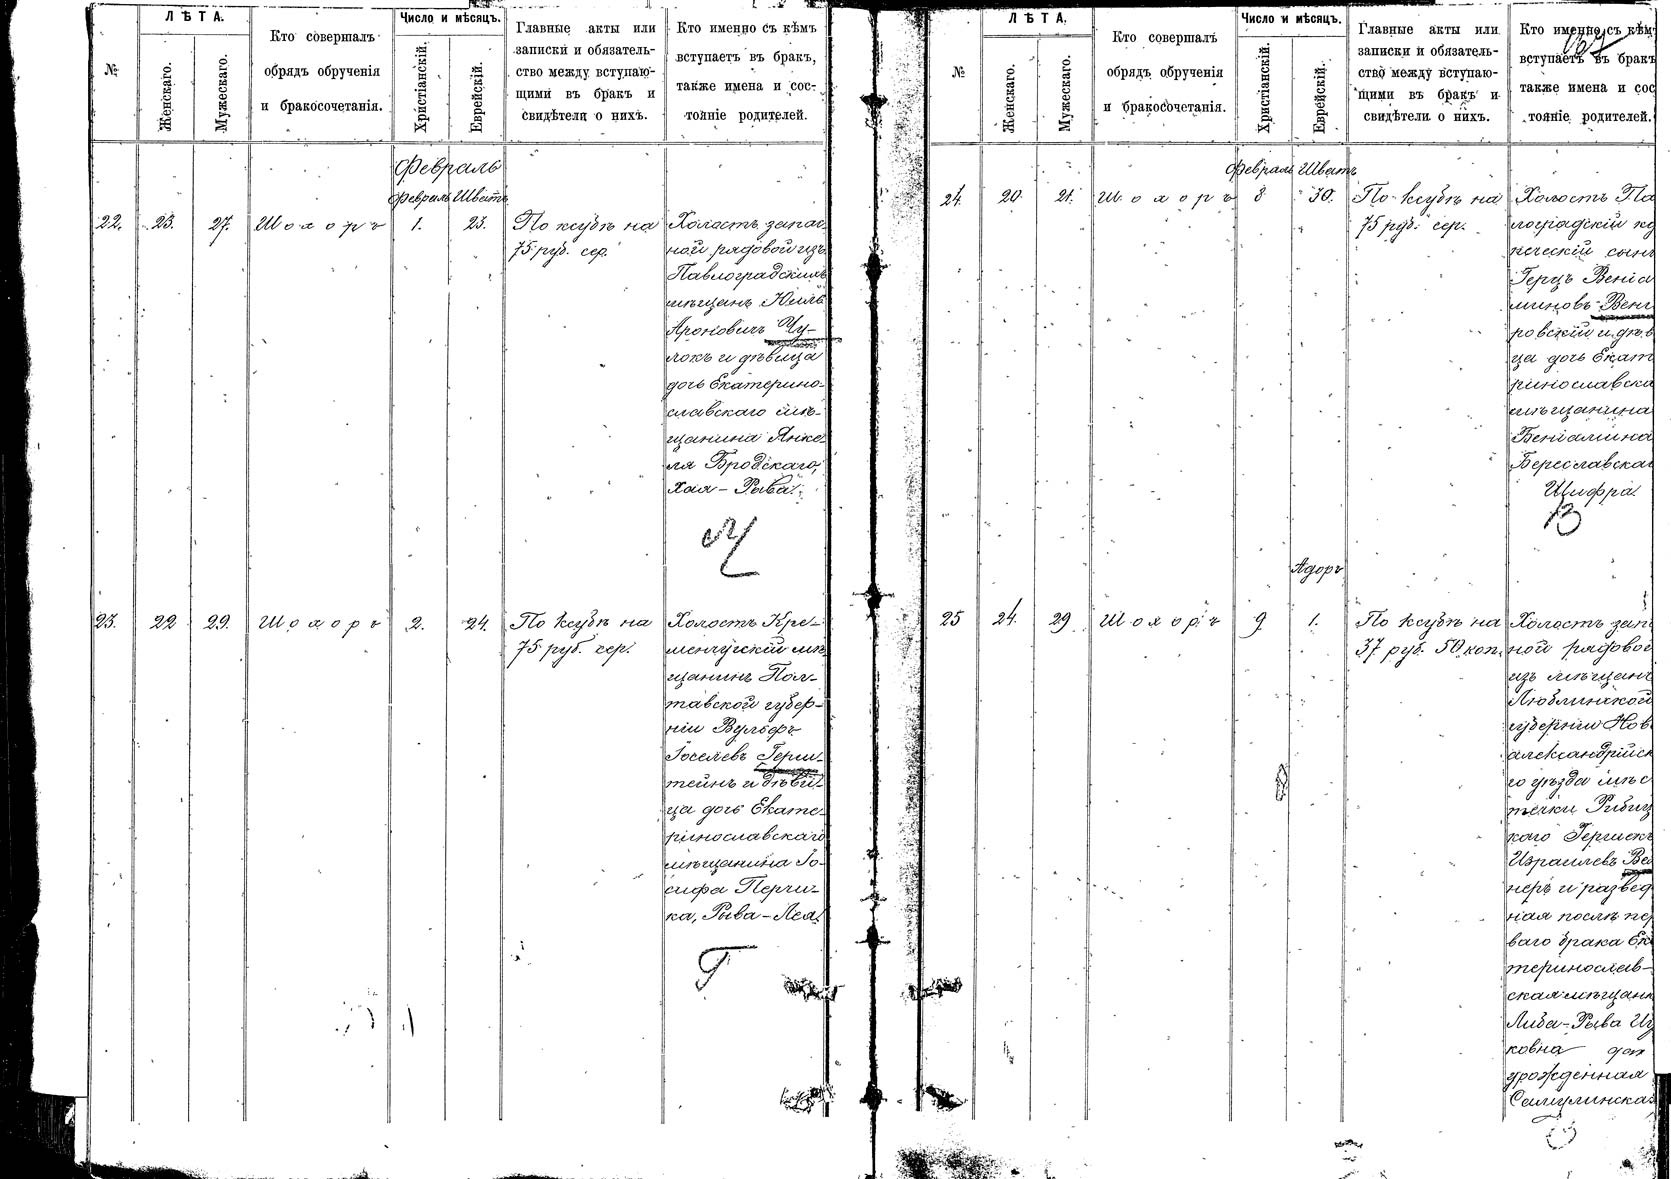 №
ЛѢТА.
Женскаго.
Мужескаго.
Кто совершалъ
обрядъ обрученія
и бракосочетанія.
Число и мѣсяцъ.
Христіанскій.
Еврейскій.
Главные акты или
записки и обязатель-
ство между вступаю-
щими въ бракъ и
свидѣтели о нихъ.
Кто именно съ кѣмъ
вступаетъ въ бракъ,
также имена и сос-
тояніе родителей.
Февраль
Февраль Шватъ
22. 23. 27. Шохоръ 1. 23.
По ксубѣ на
75 руб. сер.
Холостъ запас-
ной рядовой изъ
Павлоградскихъ
мѣщанъ
Ароновичъ Чу-
локъ и дѣвица
дочь Екатерино-
славскаго мѣ-
щанина Янке-
ля Бродскаго,
Хая-Рыва.
Ч
23. 22 29. Шохоръ 2. 24.
По ксубѣ на
75 руб. сер.
Холостъ Кре-
менчугскій мѣ
щанинъ Пол-
тавской губер-
ніи Вульфъ
Іоселевъ Герш-
тейнъ и дѣви-
ца дочь Екате-
ринославскаго
мѣщанина Іо-
сифа Перчи-
ка, Рыва-Лея.
Г
№
ЛѢТА.
Женскаго.
Мужескаго.
Кто совершалъ
обрядъ обрученія
и бракосочетанія.
Число и мѣсяцъ.
Христіанскій.
Еврейскій.
Главные акты или
записки и обязатель-
ство между вступаю-
щими въ бракъ и
свидѣтели о нихъ.
Кто именно съ кѣмъ
вступаетъ въ бракъ
также имена и сос
тояніе родителей.
Февраль Шватъ
24. 20 21. Шохоръ 8 30.
По ксубѣ на
75 руб. сер.
Холостъ Па
лоградскій ку
печескій сынъ
Герцъ Веніа
миновъ Венг
ровскій и дѣв
ца дочь Екат
ринославска
мѣщанина
Веніамина
Береславскаг
Шифра.
В
Адоръ
25 24. 29 Шохоръ 9 1.
По ксубѣ на
37 руб. 50 коп.
Холостъ зап
ной рядовой
изъ мѣщанъ
Люблинской
губерніи Нов
александрійск
го уѣзда мѣс
течки
каго Гершекъ
Израилевъ Ве
неръ и развед
ная послѣ пер
ваго брака Ек
теринослав-
ская мѣщанк
Либа-Рыва Иц
ковна
урожденная
Самулинская
В